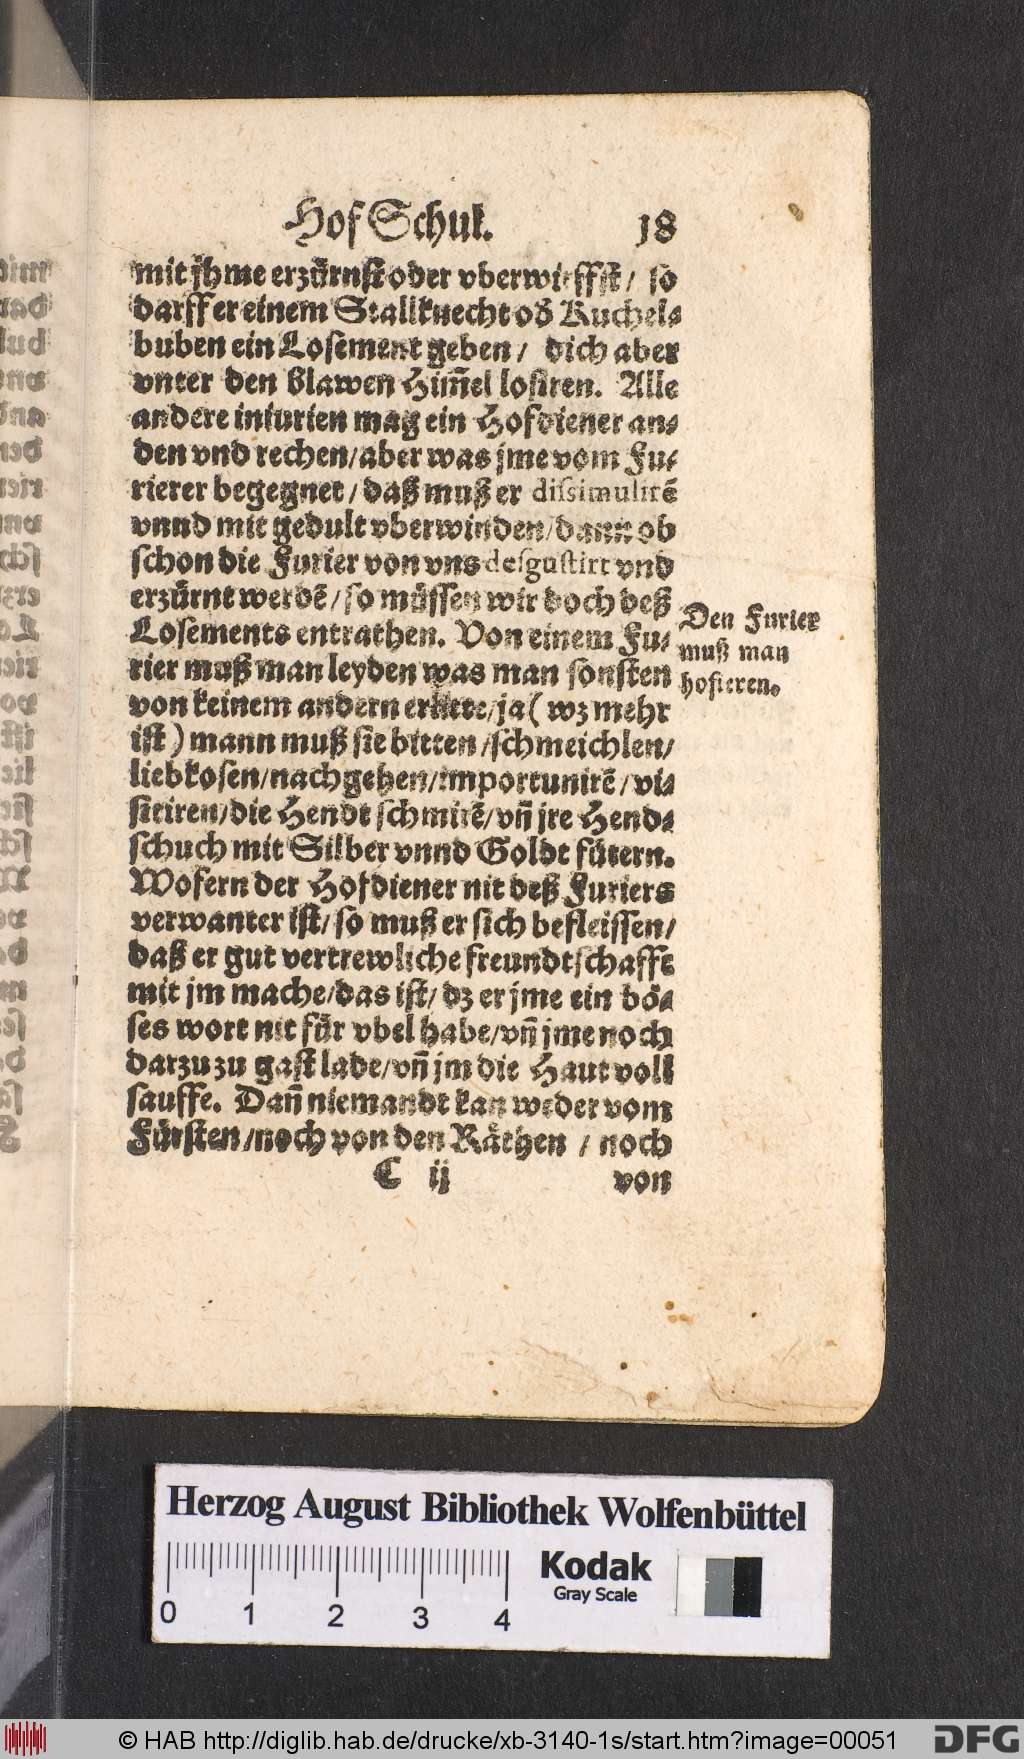 Hof Schul. 18
mit jhme erzürnst oder vberwirffst / so
darff er einem Stallknecht od̃ Kuchel-
buben ein Losement geben / dich aber
vnter den blawen Him̃el losiren. Alle
andere iniurien mag ein Hofdiener an-
den vnd rechen / aber was jme vom Fu-
rierer begegnet / daß muß er dissimulirẽ
vnnd mit gedult vberwinden / dann ob
schon die Furier von vns desgustirt vnd
erzürnt werdẽ / so müssen wir doch deß
Losements entrathen. Von einem Fu-
rier muß man leyden was man sonsten
von keinem andern erlitte / ja ( wz mehr
ist ) mann muß sie bitten / schmeichlen /
liebkosen / nachgehen / importunirẽ / vi-
sitiren / die Hendt schmirẽ / vñ jre Hend-
schuch mit Silber vnnd Goldt fütern.
Wofern der Hofdiener nit deß Furiers
verwanter ist / so muß er sich befleissen /
daß er gut vertrewliche freundtschafft
mit jm mache / das ist / dz er jme ein bö-
ses wort nit für vbel habe / vñ jme noch
darzu zu gast lade / vñ jm die Haut voll
sauffe. Dañ niemandt kan weder vom
Fürsten / noch von den Räthen / noch
C ij von
Den Furier
muß man
hofieren.
Herzog August Bibliothek Wolfenbüttel
Kodak
Gray Scale
0 1 2 3 4
© HAB http://diglib.hab.de/drucke/xb-3140-1s/start.htm?image=00051
DFG